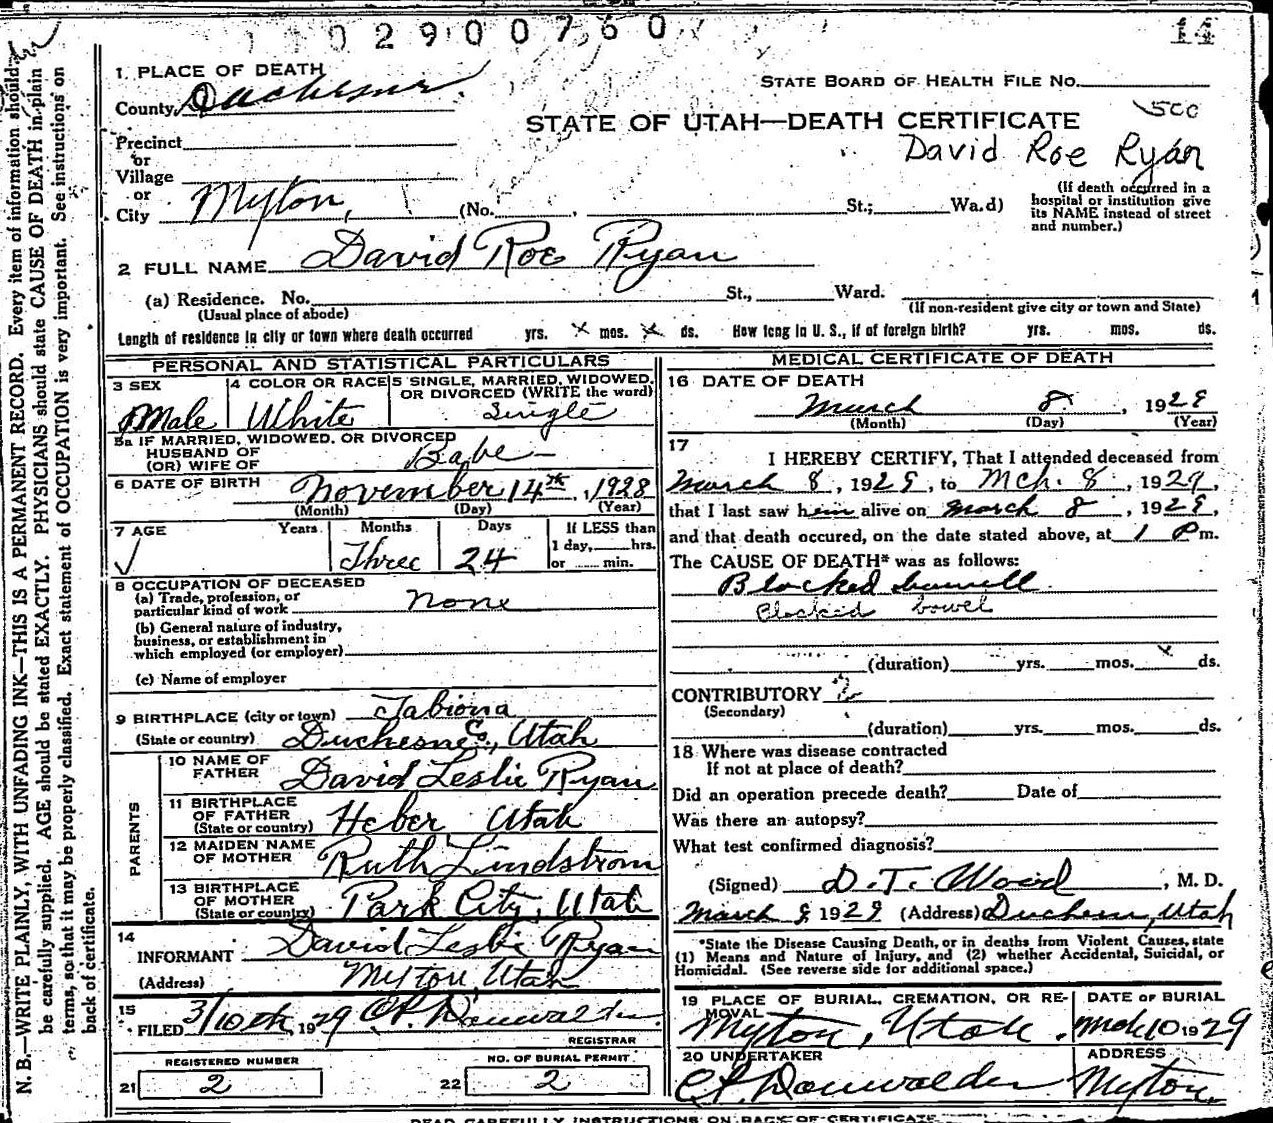 02900760
14
1. PLACE OF DEATH
County Duchesne.
STATE BOARD OF HEALTH FILE No.
STATE OF UTAH—DEATH CERTIFICATE
500
David Roe Ryan
Precinct
or
Village
or
City Myton, (No. , St.; Wa.d)
(If death occurred in a
hospital or institution give
its NAME instead of street
and number.)
2 FULL NAME David Roe Ryan
(a) Residence. No. St., Ward.
(Usual place of abode) (If non-resident give city or town and State)
Length of residence in city or town where death occurred yrs. x mos. x ds. How long in U. S., if of foreign birth? yrs. mos. ds.
PERSONAL AND STATISTICAL PARTICULARS
3 SEX
Male
4 COLOR OR RACE
White
5 SINGLE, MARRIED, WIDOWED,
OR DIVORCED (WRITE the word)
Single
5a IF MARRIED, WIDOWED, OR DIVORCED
HUSBAND OF
(OR) WIFE OF
Babe
6 DATE OF BIRTH November 14th, 1928
(Month) (Day) (Year)
7 AGE Years Months Days If LESS than
Three 24 1 day, hrs.
or min.
8 OCCUPATION OF DECEASED
(a) Trade, profession, or
particular kind of work none
(b) General nature of industry,
business, or establishment in
which employed (or employer)
(c) Name of employer
9 BIRTHPLACE (city or town) Tabiona
(State or country) Duchesne Co., Utah
PARENTS
10 NAME OF
FATHER David Leslie Ryan
11 BIRTHPLACE
OF FATHER
(State or country) Heber Utah
12 MAIDEN NAME
OF MOTHER Ruth Lindstrom
13 BIRTHPLACE
OF MOTHER
(State or country) Park City, Utah
14
INFORMANT David Leslie Ryan
(Address) Myton, Utah
15
FILED 3/10th, 1929 C.P. Dauwalder
REGISTRAR
REGISTERED NUMBER NO. OF BURIAL PERMIT
21 2 22 2
MEDICAL CERTIFICATE OF DEATH
16 DATE OF DEATH
March 8, 1929
(Month) (Day) (Year)
17
I HEREBY CERTIFY, That I attended deceased from
March 8, 1929, to Mch. 8, 1929,
that I last saw him alive on March 8, 1929,
and that death occured, on the date stated above, at 1 P m.
The CAUSE OF DEATH* was as follows:
Blocked bowell
Blocked bowel
(duration) yrs. mos. x ds.
CONTRIBUTORY ?
(Secondary)
(duration) yrs. mos. ds.
18 Where was disease contracted
If not at place of death?
Did an operation precede death? Date of
Was there an autopsy?
What test confirmed diagnosis?
(Signed) D.T. Wood, M. D.
March 9, 1929 (Address) Duchesn, Utah
*State the Disease Causing Death, or in deaths from Violent Causes, state
(1) Means and Nature of Injury, and (2) whether Accidental, Suicidal, or
Homicidal. (See reverse side for additional space.)
19 PLACE OF BURIAL, CREMATION, OR RE-
MOVAL
Myton, Utah.
DATE OF BURIAL
Mch 10 1929
20 UNDERTAKER
C.P. Dauwalder
ADDRESS
Myton.
READ CAREFULLY INSTRUCTIONS ON BACK OF CERTIFICATE
N. B.—WRITE PLAINLY, WITH UNFADING INK—THIS IS A PERMANENT RECORD. Every item of information should
be carefully supplied. AGE should be stated EXACTLY. PHYSICIANS should state CAUSE OF DEATH in plain
terms, so that it may be properly classified. Exact statement of OCCUPATION is very important. See instructions on
back of certificate.